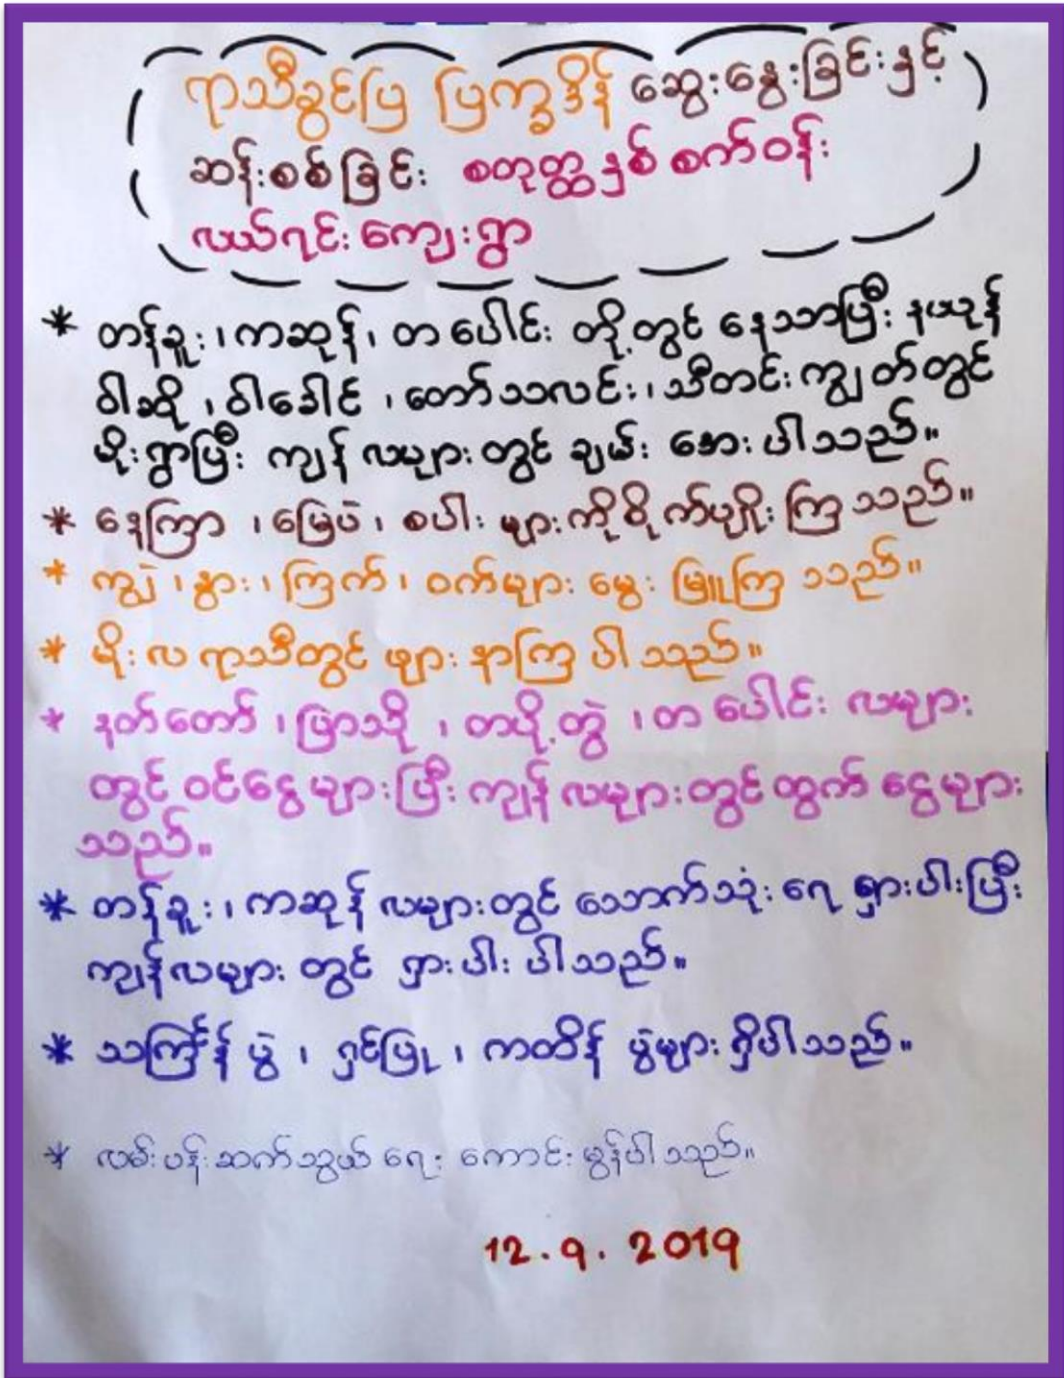 ရာသီခွင်ပြ ပြက္ခဒိန် ဆွေးနွေးခြင်းနှင့်
ဆန်းစစ်ခြင်း စတုတ္ထနှစ် စက်ဝန်း
လယ်ရင်းကျေးရွာ
* တန်ခူး၊ကဆုန်၊ တပေါင်း တို့တွင် နေသာပြီး နယုန်
ဝါဆို ၊ ဝါခေါင် ၊ တော်သလင်း၊သီတင်းကျွတ်တွင်
မိုးရွာပြီး ကျန် လများတွင် ချမ်း အေးပါသည်။
* နေကြာ ၊ မြေပဲ ၊ စပါး များကိုစိုက်ပျိုးကြသည်။
* ကျွဲ ၊ နွား ၊ ကြက် ၊ ဝက်များ မွေးမြူကြ သည်။
* မိုးလ ရာသီတွင် ဖျား နာကြပါသည်။
* နတ်တော် ၊ ပြာသို ၊ တပို့တွဲ ၊ တပေါင်း လများ
တွင် ဝင်ငွေများပြီး ကျန် လများတွင် ထွက် ငွေများ
သည်။
* တန်ခူး၊ ကဆုန် လများတွင် သောက်သုံး ရေ ရှားပါးပြီး
ကျန်လများ တွင် ရှားပါး ပါသည်။
* သင်္ကြန် ပွဲ ၊ ရှင်ပြု ၊ ကထိန် ပွဲများ ရှိပါသည်။
* လမ်းပန်းဆက်သွယ် ရေး ကောင်းမွန်ပါသည်။
12.9.2019